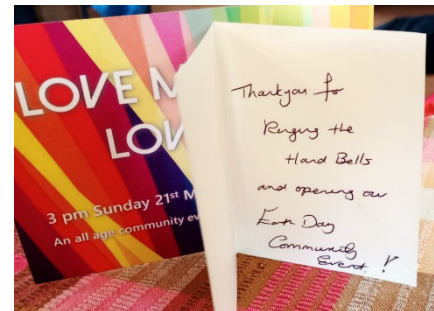 LOVE M
LOV
3 pm Sunday 21st M
An all age community ev
Thankyou for
Ringing the
Hand Bells
and opening our
Earth Day
Community
Event!